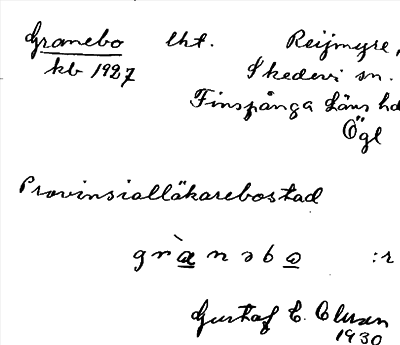 Granebo lht. Reijmyre,
kb 1927 Skedevi sn.
Finspånga läns hd
Ögl
Provinsialläkarebostad
grànəbo :r
Gustaf E. Olsson
1930